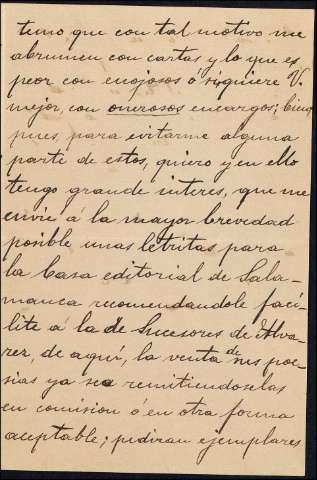 temo que con tal motivo me
abrumen con cartas y lo que es
peor con enojosos ó si quiere V.
mejor, con onerosos encargos; bien
pues, para evitarme alguna
parte de estos, quiero y en ello
tengo grande interes, que me
envie á la mayor brevedad
posible unas letritas para
la Casa editorial de Sala-
manca recomendandole faci-
lite á la de Sucesores de Alva-
rez, de aquí, la venta de sus poe-
sias ya sea remitiendoselas
en comision ó en otra forma
aceptable; pidiran ejemplares